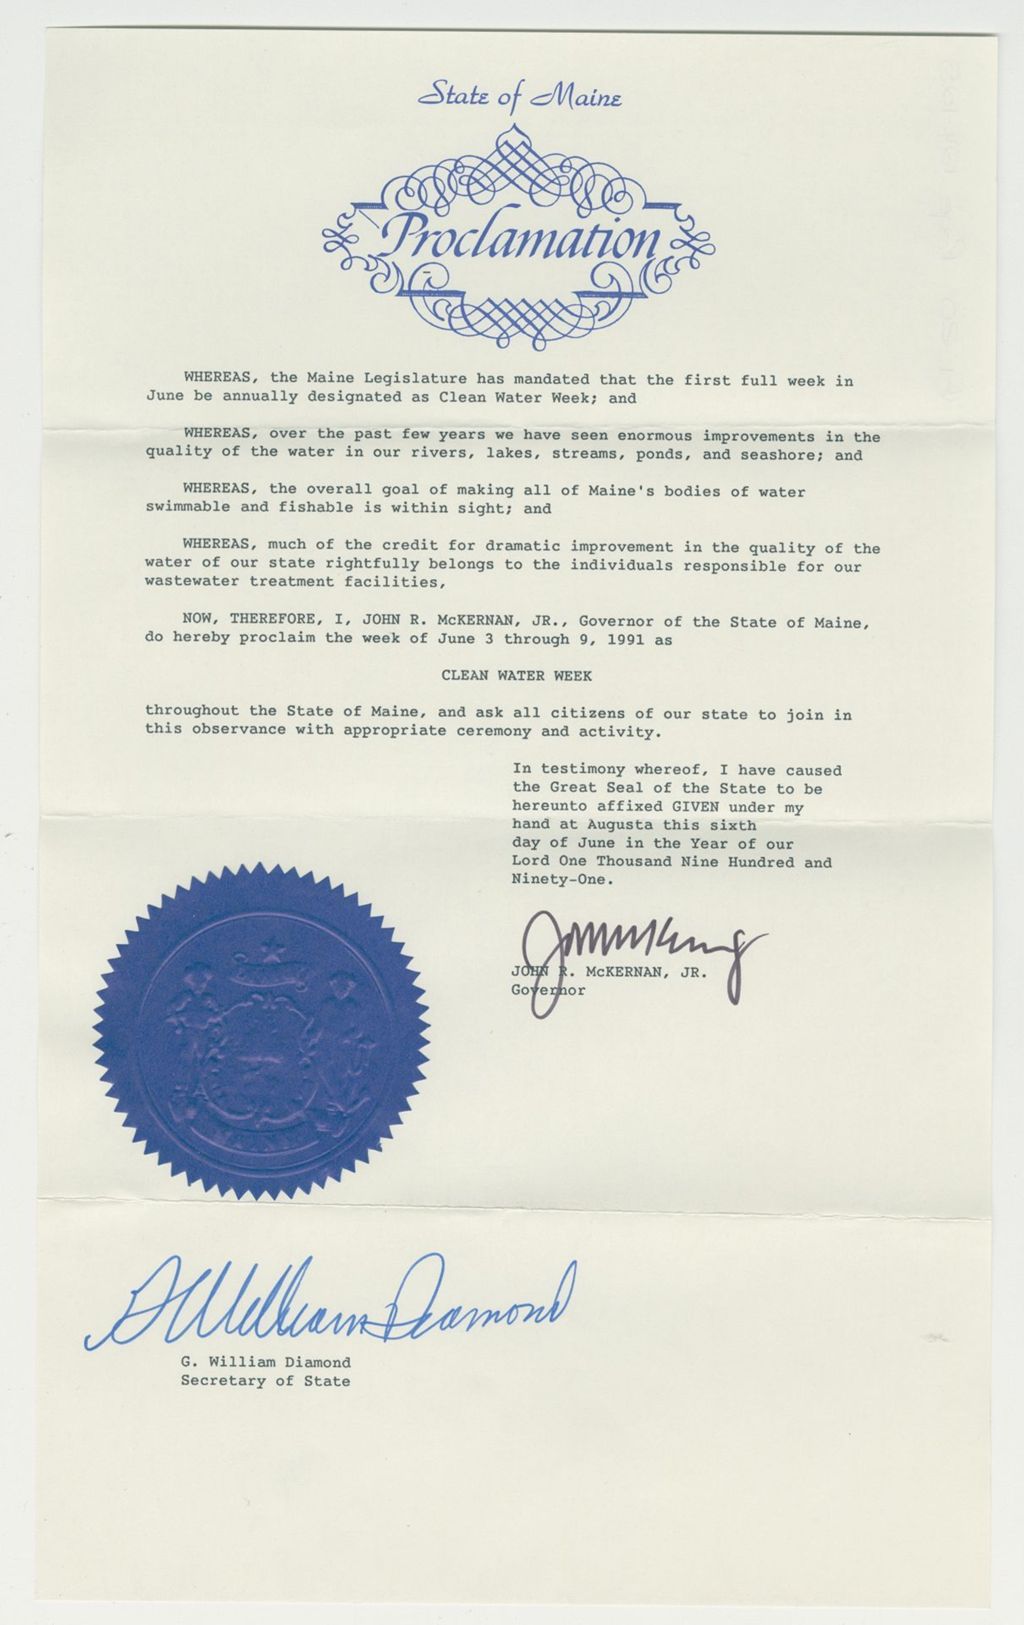 State of Maine
Proclamation
WHEREAS, the Maine Legislature has mandated that the first full week in
June be annually designated as Clean Water Week; and
WHEREAS, over the past few years we have seen enormous improvements in the
quality of the water in our rivers, lakes, streams, ponds, and seashore; and
WHEREAS, the overall goal of making all of Maine's bodies of water
swimmable and fishable is within sight; and
WHEREAS, much of the credit for dramatic improvement in the quality of the
water of our state rightfully belongs to the individuals responsible for our
wastewater treatment facilities,
NOW, THEREFORE, I, JOHN R. McKERNAN, JR., Governor of the State of Maine,
do hereby proclaim the week of June 3 through 9, 1991 as
CLEAN WATER WEEK
throughout the State of Maine, and ask all citizens of our state to join in
this observance with appropriate ceremony and activity.
In testimony whereof, I have caused
the Great Seal of the State to be
hereunto affixed GIVEN under my
hand at Augusta this sixth
day of June in the Year of our
Lord One Thousand Nine Hundred and
Ninety-One.
JOHN R. McKERNAN, JR.
Governor
G William Diamond
G. William Diamond
Secretary of State